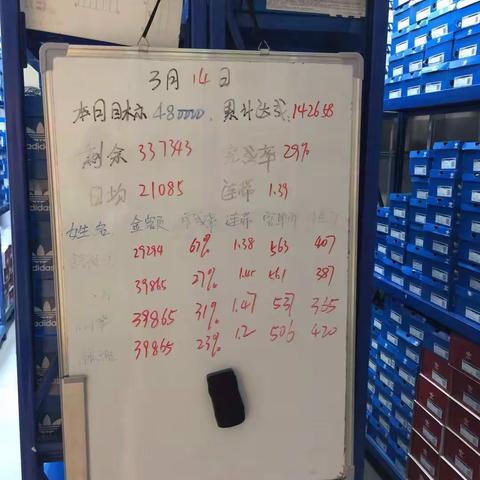 3月14日
本月目标 480000、累计达成:142658
剩余 337343 完成率 29%
日均 21085 连带 1.39
姓名 金额 完成率 连带 客单价
29294 67% 1.38 563 407
39865 27% 561 387
39865 31% 1.47 537 365
39865 23% 1.2 506 420
adidas
adidas
adidas